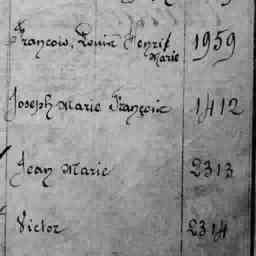 François, Louis Henri 1959
Marie
Joseph Marie François 1412
Jean Marie 2313
Victor 2314